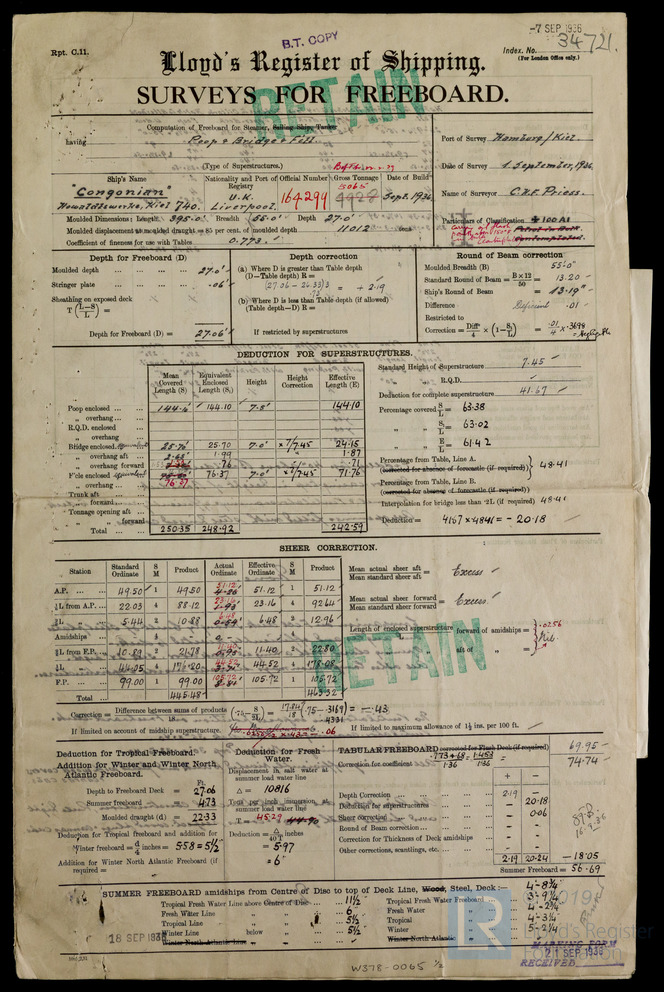 -7 SEP 1936
B.T. COPY
Rpt. C.11.
Index. No. 34721.
(For London Office only.)
Lloyd's Register of Shipping.
RETAIN
SURVEYS FOR FREEBOARD.
Computation of Freeboard for Steamer, Sailing Ship, Tanker
having Poop & Bridge & F'cle
(Type of Superstructures.)
Port of Survey Hamburg/Kiel
Date of Survey 1 September, 1936
Name of Surveyor C.H.F. Priess.
Particulars of Classification +100A1
Ship's Name
Nationality and Port of Registry
Official Number
Gross Tonnage
Date of Build
"Congonian"
U.K.
164294
5065
4928
Sept. 1936
Howaldtswerke, Kiel 740.
Liverpool
Moulded Dimensions: Length 395.0' Breadth 55.0' Depth 27.0'
Moulded displacement at moulded draught = 85 per cent. of moulded depth 11012 tons
Coefficient of fineness for use with Tables 0.773
Depth for Freeboard (D)
Moulded depth 27.0'
Stringer plate .06'
Sheathing on exposed deck
T (L-S/L) =
Depth for Freeboard (D) = 27.06'
Depth correction
(a) Where D is greater than Table depth
(D-Table depth) R =
(27.06 - 26.33) 3 = + 2.19
(b) Where D is less than Table depth (if allowed)
(Table depth-D) R =
If restricted by superstructures
Round of Beam correction
Moulded Breadth (B) 55.0'
Standard Round of Beam = B×12/50 = 13.20
Ship's Round of Beam = 13.19"
Difference Deficient .01
Restricted to
Correction = Diff/4 × (1-S₁/L) = .01/4 × .3698
DEDUCTION FOR SUPERSTRUCTURES.
Mean Covered Length (S)
Equivalent Enclosed Length (S₁)
Height
Height Correction
Effective Length (E)
Poop enclosed 144.10 7.5' 144.10
„ overhang
R.Q.D. enclosed
„ overhang
Bridge enclosed 25.70 25.70 7.0' ×7/7.45 24.15
„ overhang aft 1.99 1.87
„ overhang forward .76 .71
F'cle enclosed 76.37 76.37 7.0' ×7/7.45 71.76
„ overhang
Trunk aft
„ forward
Tonnage opening aft
„ „ forward
Total 250.35 248.92 242.59
Standard Height of Superstructure 7.45
„ „ R.Q.D.
Deduction for complete superstructure 41.67
Percentage covered S/L = 63.38
„ „ S₁/L = 63.02
„ „ E/L = 61.42
Percentage from Table, Line A. 48.41
(corrected for absence of forecastle (if required))
Percentage from Table, Line B.
(corrected for absence of forecastle (if required))
Interpolation for bridge less than .2L (if required) 48.41
Deduction = 41.67 × .4841 = - 20.18
SHEER CORRECTION.
Station
Standard Ordinate
S M
Product
Actual Ordinate
Effective Ordinate
S M
Product
A.P. 49.50 1 49.50 51.12 51.12 1 51.12
¼L from A.P. 22.03 4 88.12 23.16 23.16 4 92.64
½L 5.44 2 10.88 6.48 6.48 2 12.96
Amidships 4 0 4
½L from F.P. 10.89 2 21.78 11.40 2 22.80
¼L 44.05 4 176.20 44.52 44.52 4 178.08
F.P. 99.00 1 99.00 105.72 105.72 1 105.72
Total 445.48 463.32
Mean actual sheer aft / Mean standard sheer aft = Excess
Mean actual sheer forward / Mean standard sheer forward = Excess
Length of enclosed superstructure forward of amidships = .0256
„ aft of „ =
RETAIN
Correction = Difference between sums of products / 18 (.75-S/2L) = 17.84/18 (.75-.3169) = -.43
.4331
If limited on account of midship superstructure. = -.06
If limited to maximum allowance of 1½ ins. per 100 ft.
Deduction for Tropical Freeboard.
Addition for Winter and Winter North Atlantic Freeboard.
Ft.
Depth to Freeboard Deck = 27.06
Summer freeboard = 4.73
Moulded draught (d) = 22.33
Deduction for Tropical freeboard and addition for
Winter freeboard = d/4 inches = 5.58 = 5½"
Addition for Winter North Atlantic Freeboard (if required) =
Deduction for Fresh Water.
Displacement in salt water at summer load water line
Δ = 10816
Tons per inch immersion at summer load water line
T = 45.29
Deduction = Δ/40T inches
= 5.97
= 6"
TABULAR FREEBOARD corrected for Flush Deck (if required) 69.95
Correction for coefficient .773+.68/1.36 = 1.453/1.36 = 74.74
+ -
Depth Correction 2.19 -
Deduction for superstructures - 20.18
Sheer correction - 0.06
Round of Beam correction - -
Correction for Thickness of Deck amidships - -
Other corrections, scantlings, etc. - -
2.19 20.24 -18.05
Summer Freeboard = 56.69
SUMMER FREEBOARD amidships from Centre of Disc to top of Deck Line, Wood, Steel, Deck :- 4'-8¾"
Tropical Fresh Water Line above Centre of Disc 11½
Fresh Water Line „ „ 6
Tropical Line „ „ 5½
Winter Line below „ 5½
Winter North Atlantic Line „ „
Tropical Fresh Water Freeboard 3'-9¼"
Fresh Water „ 4'-2¾"
Tropical „ 4'-3¼"
Winter „ 5'-2¼"
Winter North Atlantic „
18 SEP 1936
MARKING FORM
21 SEP 1936
RECEIVED
LR
Lloyd's Register
Foundation
W378-0065 ½